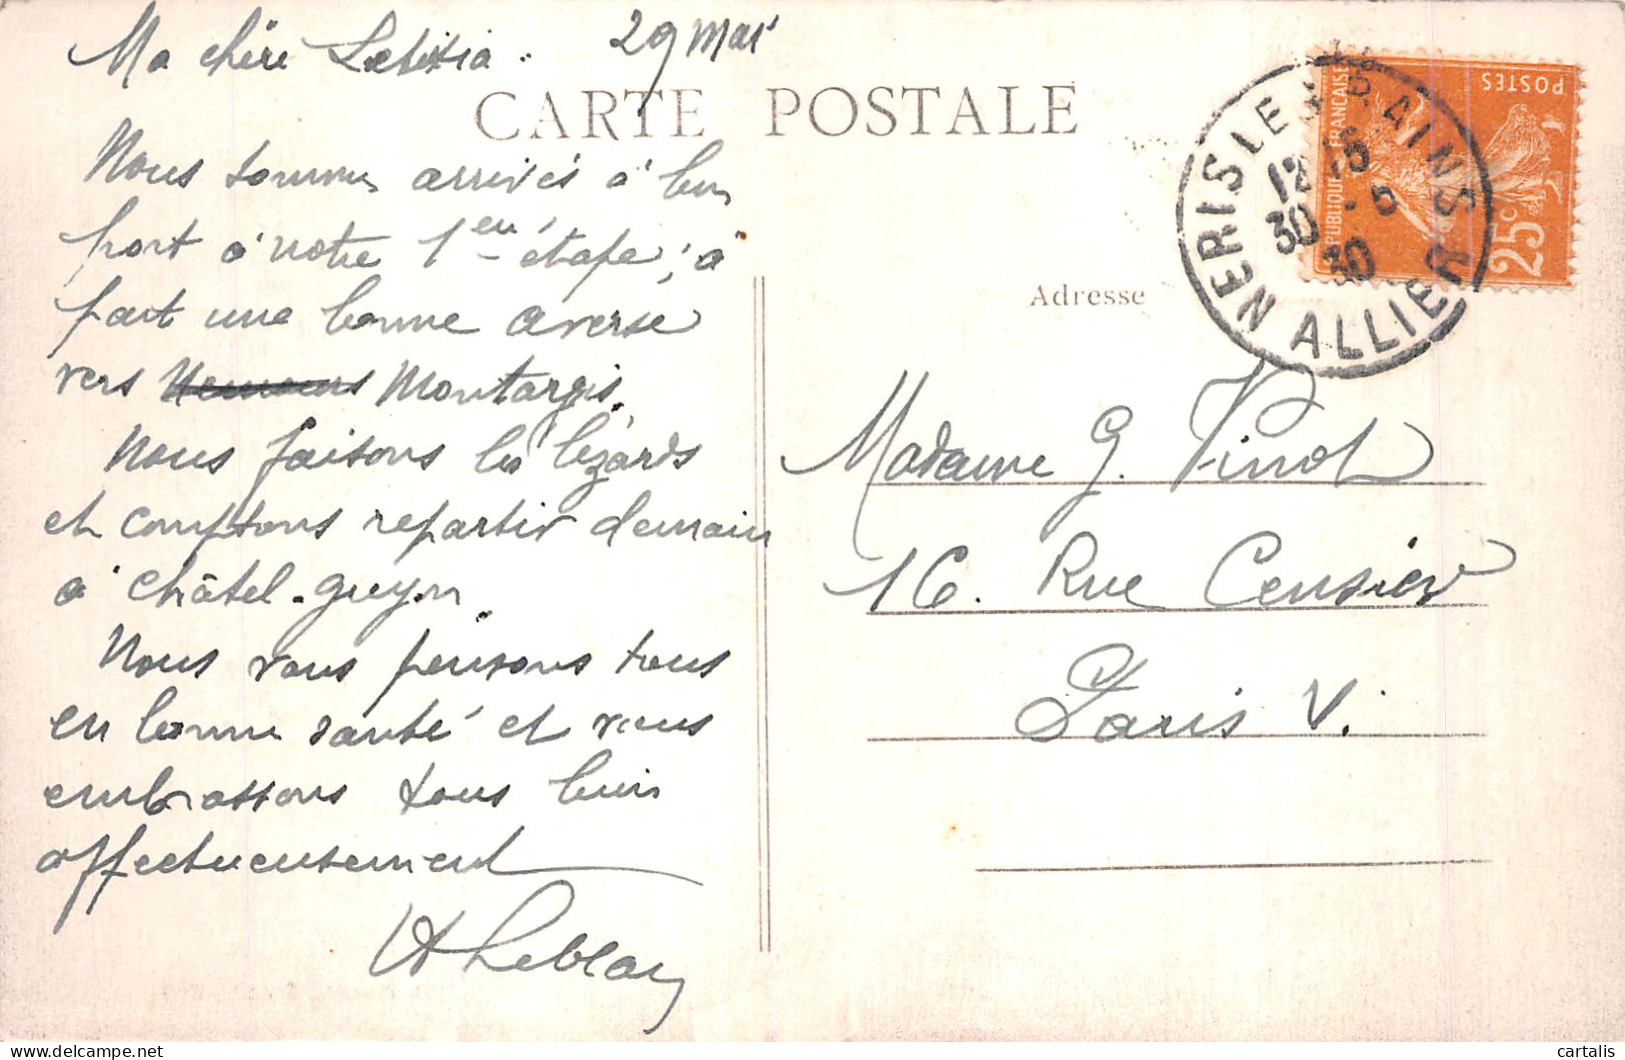 Ma chère Letixia.
29 mai
CARTE POSTALE
Nous sommes arrivés à bon
port à notre 1ère étape, à
part une bonne averse
vers Montargis.
Nous faisons les lézards
et comptons repartir demain
à Châtel-guyon.
Nous vous pensons tous
en bonne santé et vous
embrassons tous bien
affectueusement
HLeblanc
POSTES
REPUBLIQUE FRANCAISE
25c
NERIS LES BAINS
12 15
30 - 5
30
ALLIER
Adresse
Madame G. Pinot
16. Rue Censier
Paris V.
cartalis